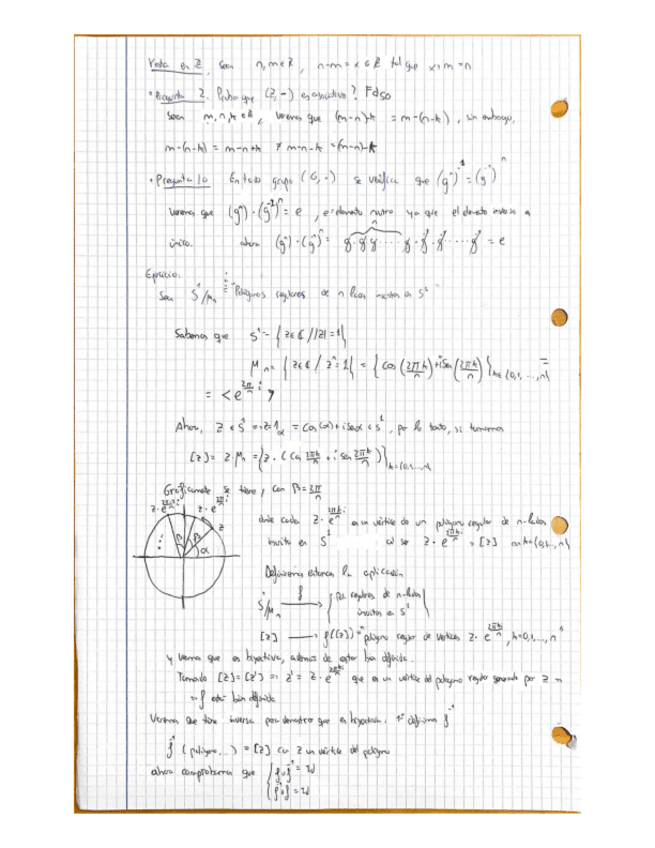 Resta en Z, Sean n, m ∈ Z, n-m = x ∈ Z tal que x+m = n
• Pregunta 2. Probar que (Z, -) es asociativo? Falso
Sean m, n, k ∈ Z, veremos que (m-n)-k = m-(n-k), sin embargo,
m-(n-k) = m-n+k ≠ m-n-k = (m-n)-k
• Pregunta 10 En todo grupo (G, ·) se verifica que (gⁿ)⁻¹ = (g⁻¹)ⁿ
Veremos que (gⁿ)·(g⁻¹)ⁿ = e, e: elemento neutro ya que el elemento inverso es
único. ahora (gⁿ)·(g⁻¹)ⁿ = g·g·g·····g·g⁻¹·g⁻¹·····g⁻¹ = e
Ejercicio:
Sea S¹/μₙ "Polígonos regulares de n lados inscritos en S¹"
Sabemos que S¹ = {z ∈ C / |z| = 1}
μₙ = {z ∈ C / zⁿ = 1} = {cos(2πk/n) + i sen(2πk/n)}ₖ∈{0,1,...,n} =
= <e^(2π/n i)>
Ahora, z ∈ S¹ => z = 1_α = cos(α) + i sen α ∈ S¹, por lo tanto, si tomamos
[z] = z·μₙ = {z·(cos 2πk/n + i sen 2πk/n)}ₖ={0,1,...,n}
Gráficamente se tiene, con β = 2π/n
donde cada z·e^(2πk/n i) es un vértice de un polígono regular de n-lados
inscrito en S¹ al ser z·e^(2πk/n i) = [z] k={0,1,...,n}
z
β β α
Definiremos entonces la aplicación
S¹/μₙ —f→ {pol. regulares de n-lados
inscritos en S¹}
[z] ⟶ f([z]) = "polígono regular de vértices z·e^(2πk/n i), k=0,1,...,n"
y vemos que es biyectiva, además de estar bien definida.
Tomando [z] = [z'] => z' = z·e^(2πk/n i) que es un vértice del polígono regular generado por z =>
=> f está bien definida
Veremos que tiene inversa para demostrar que es biyectiva. 1º definimos f⁻¹
f⁻¹(polígono...) = [z] con z un vértice del polígono
ahora comprobamos que {f∘f⁻¹ = Id
{f⁻¹∘f = Id